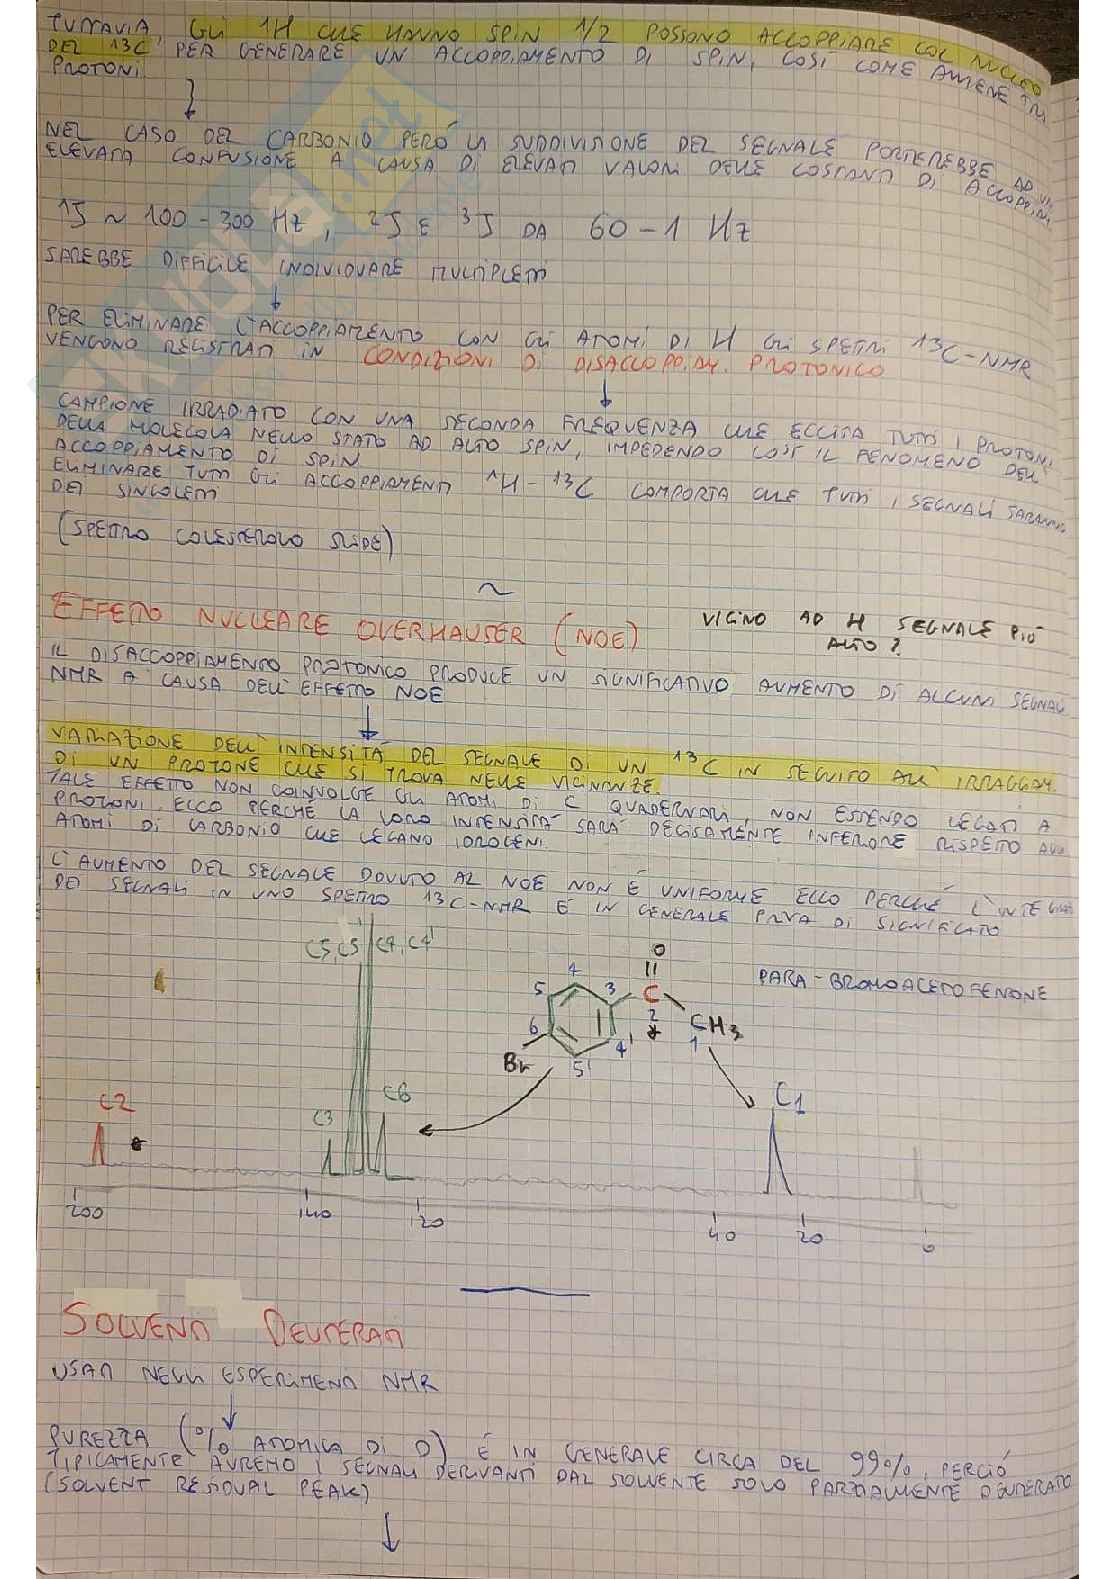 TUTTAVIA, GLI 1H CHE HANNO SPIN 1/2 POSSONO ACCOPPIARE COL NUCLEO
DEL 13C PER GENERARE UN ACCOPPIAMENTO DI SPIN, COSÌ COME AVVIENE TRA
PROTONI
NEL CASO DEL CARBONIO PERÒ LA SUDDIVISIONE DEL SEGNALE PORTEREBBE AD UN
ELEVATA CONFUSIONE A CAUSA DI ELEVATI VALORI DELLE COSTANTI DI ACCOPPIAM.
1J ~ 100-300 Hz, 2J E 3J DA 60-1 Hz
SAREBBE DIFFICILE INDIVIDUARE MULTIPLETTI
PER ELIMINARE L'ACCOPPIAMENTO CON GLI ATOMI DI H GLI SPETTRI 13C-NMR
VENGONO REGISTRATI IN CONDIZIONI DI DISACCOPPIAM. PROTONICO
CAMPIONE IRRADIATO CON UNA SECONDA FREQUENZA CHE ECCITA TUTTI I PROTONI
DELLA MOLECOLA NELLO STATO AD ALTO SPIN, IMPEDENDO COSÌ IL FENOMENO DELL'
ACCOPPIAMENTO DI SPIN
ELIMINARE TUTTI GLI ACCOPPIAMENTI 1H-13C COMPORTA CHE TUTTI I SEGNALI SARANNO
DEI SINGOLETTI
(SPETTRO COLESTEROLO SLIDE)
~
EFFETTO NUCLEARE OVERHAUSER (NOE)
VICINO AD H SEGNALE PIÙ
ALTO?
IL DISACCOPPIAMENTO PROTONICO PRODUCE UN SIGNIFICATIVO AUMENTO DI ALCUNI SEGNALI
NMR A CAUSA DELL'EFFETTO NOE
VARIAZIONE DELL'INTENSITÀ DEL SEGNALE DI UN 13C IN SEGUITO ALL'IRRAGGIAM.
DI UN PROTONE CHE SI TROVA NELLE VICINANZE.
TALE EFFETTO NON COINVOLGE GLI ATOMI DI C QUATERNARI, NON ESSENDO LEGATI A
PROTONI. ECCO PERCHÉ LA LORO INTENSITÀ SARÀ DECISAMENTE INFERIORE RISPETTO AGLI
ATOMI DI CARBONIO CHE LEGANO IDROGENI.
L'AUMENTO DEL SEGNALE DOVUTO AL NOE NON È UNIFORME ECCO PERCHÉ L'INTEGRAZ
DEI SEGNALI IN UNO SPETTRO 13C-NMR È IN GENERALE PRIVA DI SIGNIFICATO
C5,C5' C4,C4'
PARA-BROMOACETOFENONE
O
C
CH3
Br
1
2
3
4
5
6
4'
5'
C2
C3
C6
C1
200
140
120
40
20
0
SOLVENTI DEUTERATI
USATI NEGLI ESPERIMENTI NMR
PUREZZA (% ATOMICA DI D) È IN GENERALE CIRCA DEL 99%, PERCIÒ
TIPICAMENTE AVREMO I SEGNALI DERIVANTI DAL SOLVENTE SOLO PARZIALMENTE DEUTERATO
(SOLVENT RESIDUAL PEAK)
SKUOLA.net